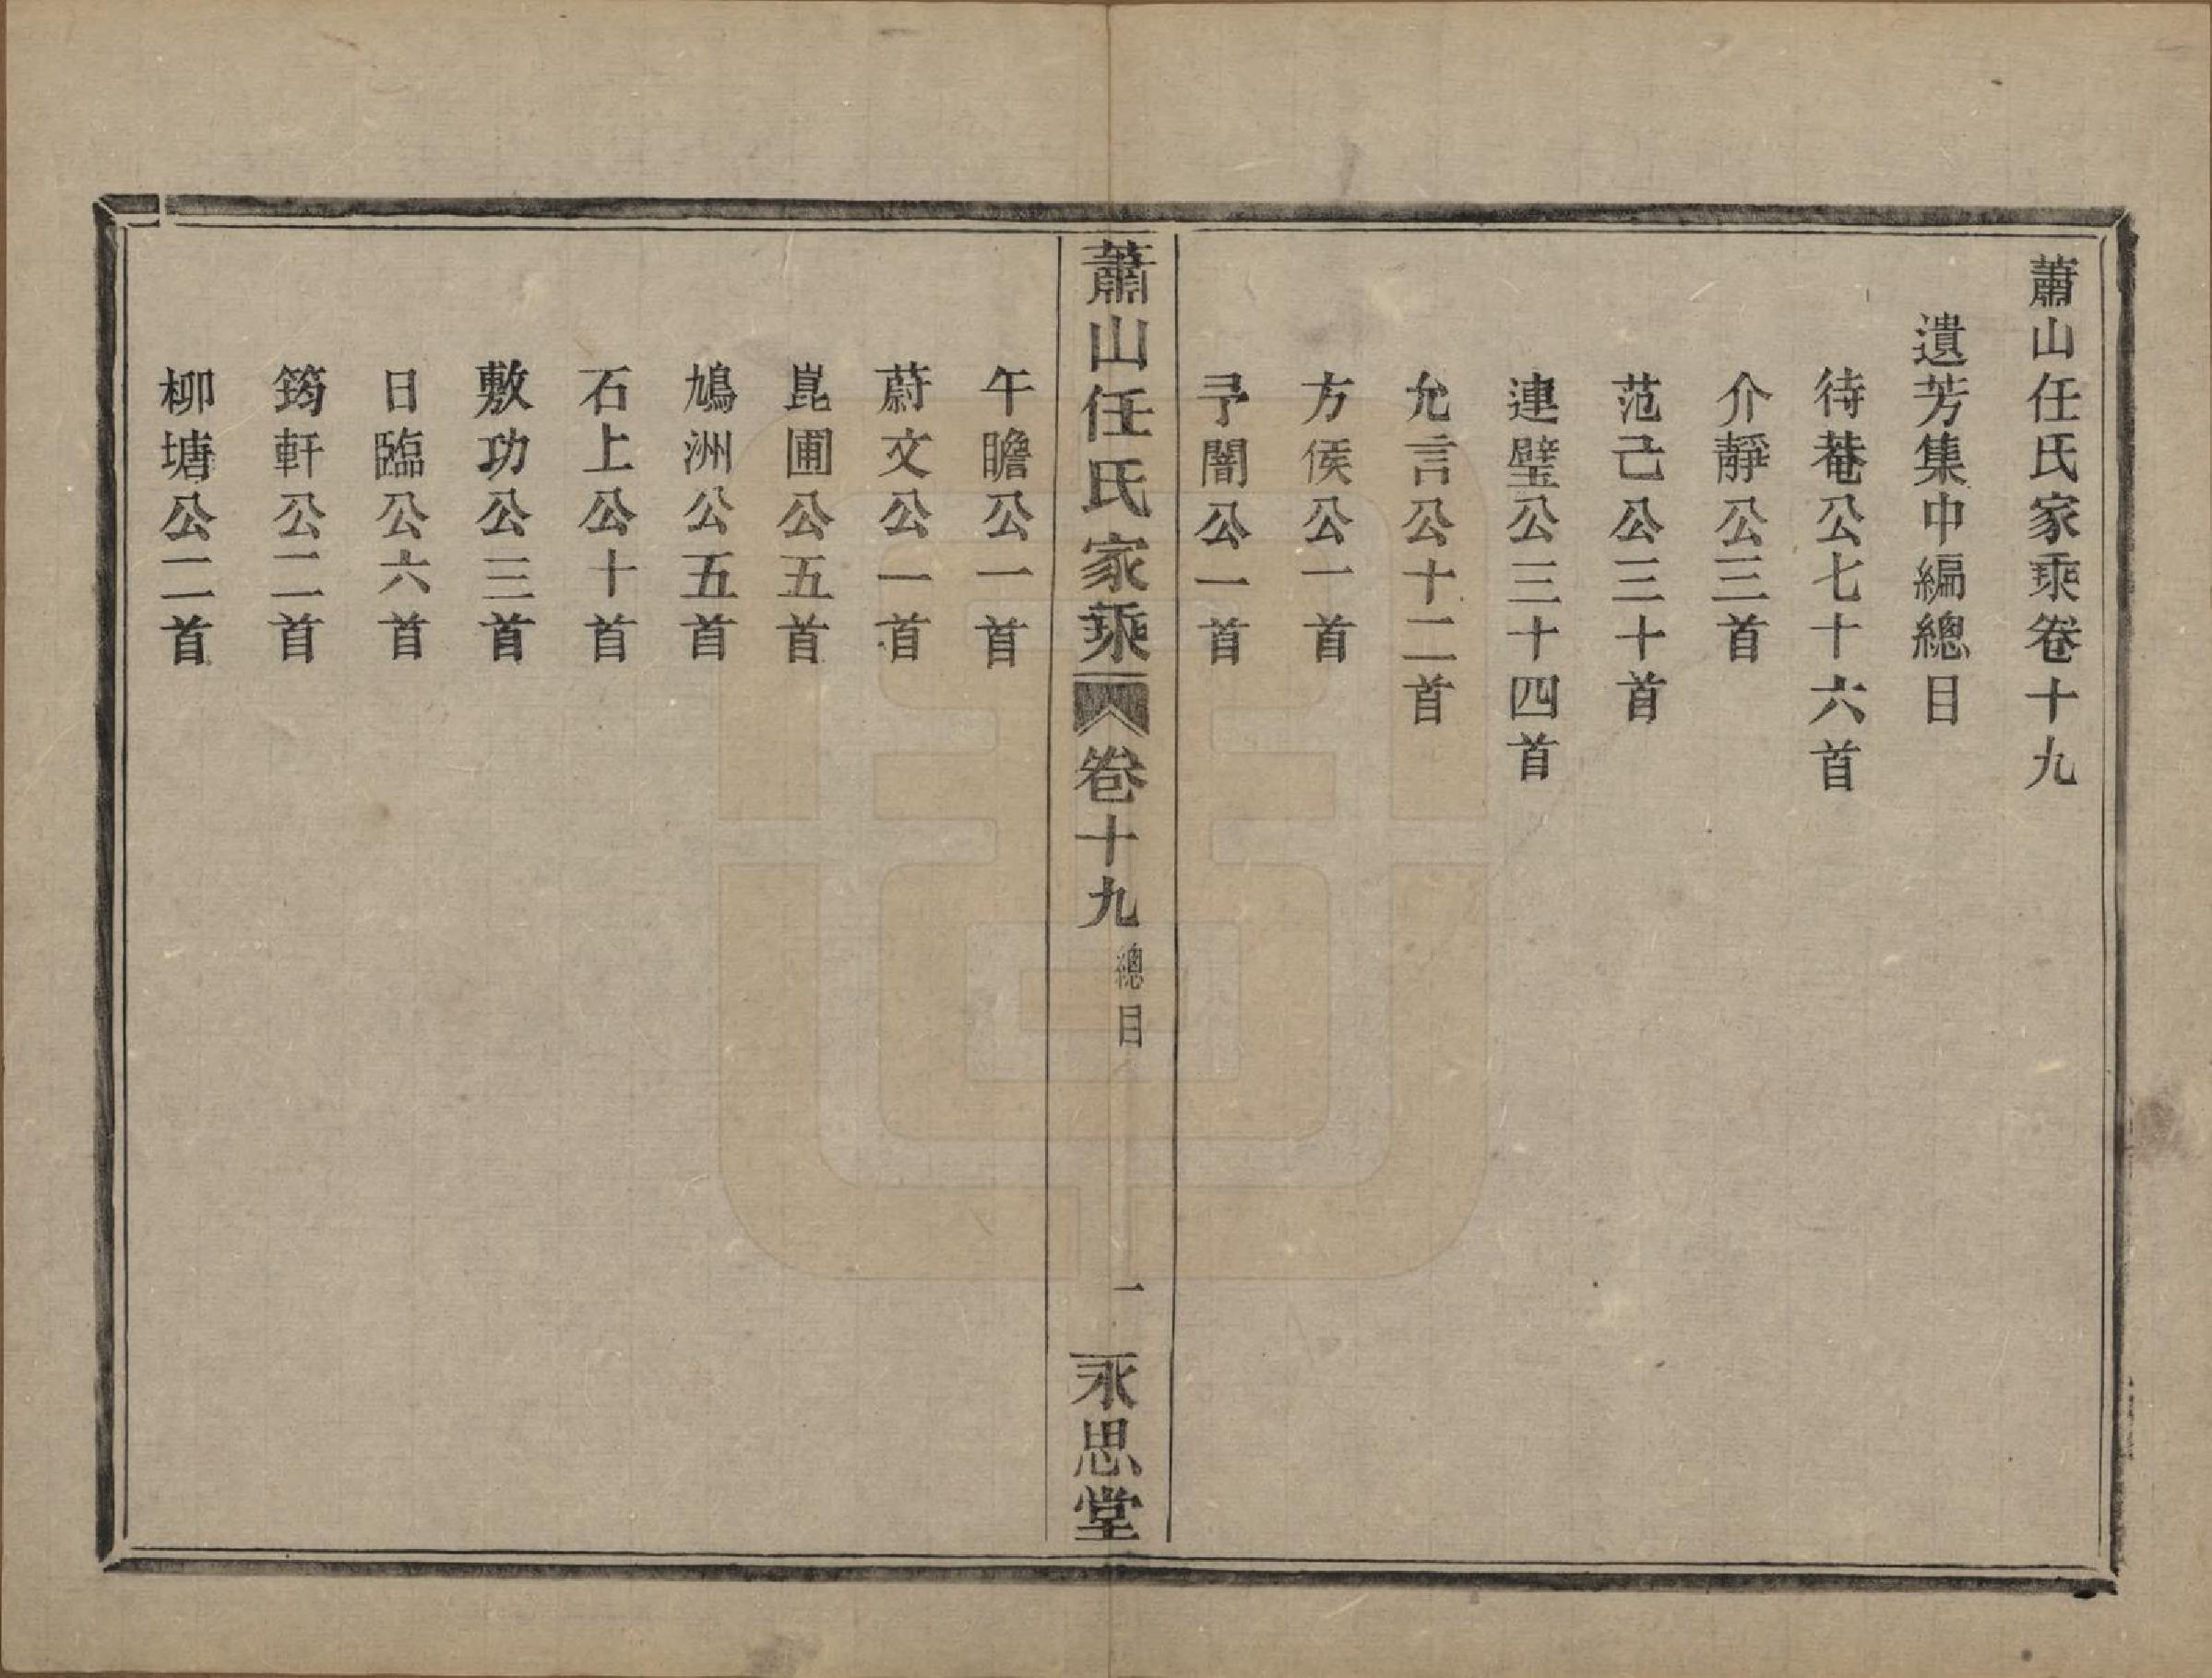 蕭山任氏家乘卷十九
遺芳集中編總目
待菴公七十六首
介靜公三首
范己公三十首
連璧公三十四首
允言公十二首
方侯公一首
予闇公一首
蕭山任氏家乘 卷十九 總目 一 永思堂
午瞻公一首
蔚文公一首
崑圃公五首
鳩洲公五首
石上公十首
敷功公三首
日臨公六首
筠軒公二首
柳塘公二首